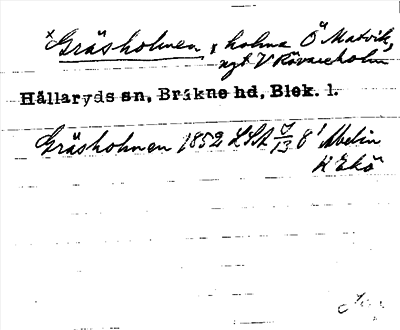 x Gräsholmen, holme Ö Matvik,
ngt V Rövareholm
Hällaryds sn, Bräkne hd, Blek. l.
Gräsholmen 1852 LSA 7/13 8' Abelin
K Ekö